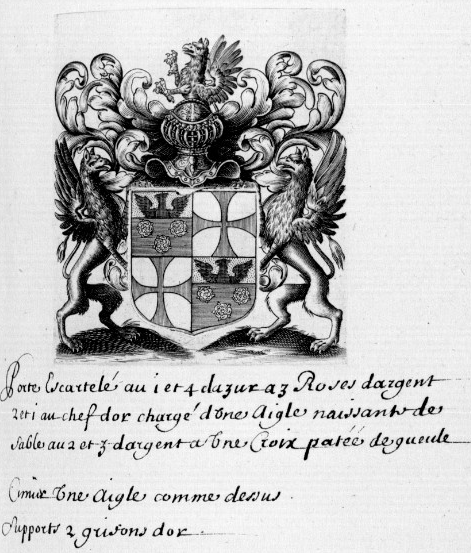 Porte Escartelé au 1 et 4 dazur a 3 Roses dargent
2 et 1 au chef dor chargé dVne Aigle naissante de
sable au 2 et 3 dargent a Vne Croix patéé de gueule
Cimier Vne Aigle comme dessus.
Supports 2 grifons dor.